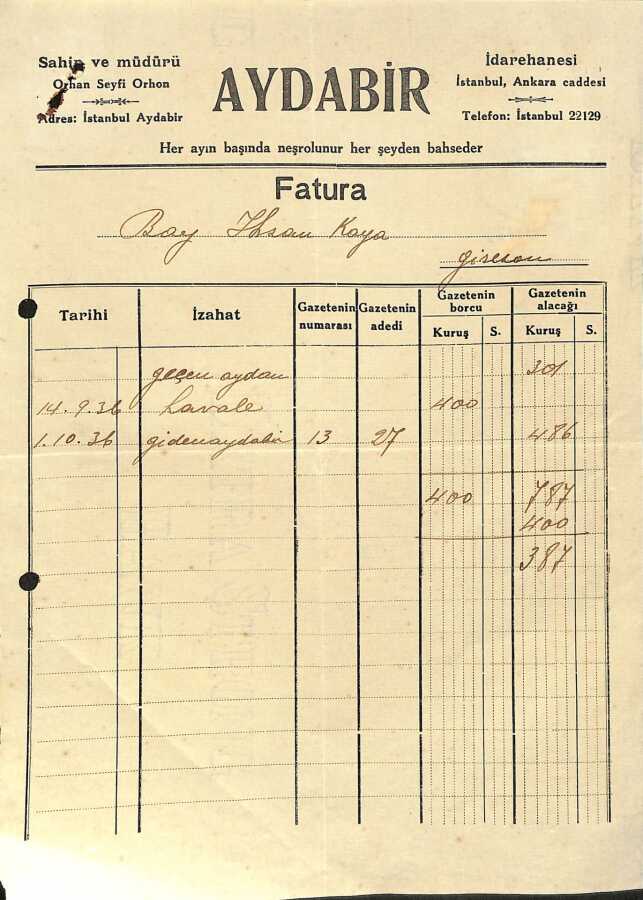 Sahip ve müdürü
Orhan Seyfi Orhon
Adres: İstanbul Aydabir
AYDABİR
İdarehanesi
İstanbul, Ankara caddesi
Telefon: İstanbul 22129
Her ayın başında neşrolunur her şeyden bahseder
Fatura
Bay İhsan Kaya
gireson
Tarihi İzahat Gazetenin numarası Gazetenin adedi Gazetenin borcu Gazetenin alacağı
Kuruş S. Kuruş S.
geçen aydan 301
14.9.36 havale 400
1.10.36 giden aydabir 13 27 486
400 787
400
387